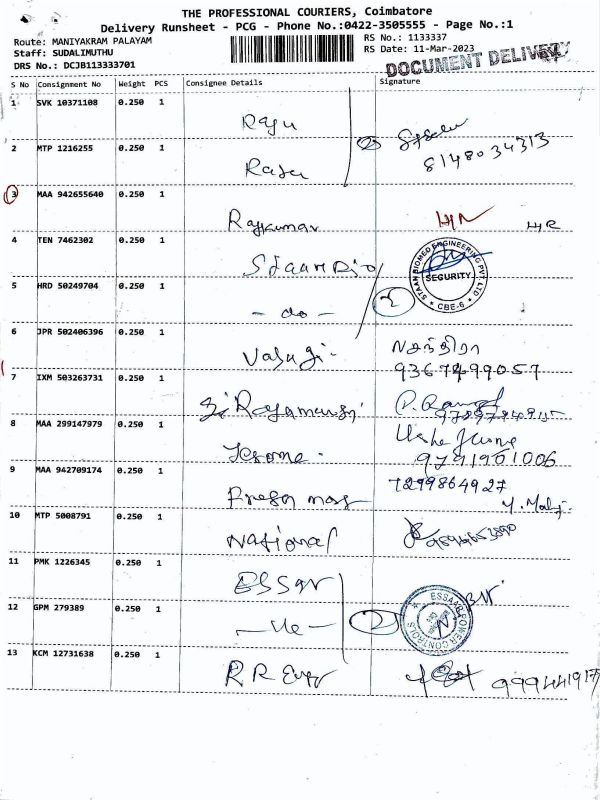 THE PROFESSIONAL COURIERS, Coimbatore
Delivery Runsheet - PCG - Phone No.:0422-3505555 - Page No.:1
Route: MANIYAKRAM PALAYAM
RS No.: 1133337
Staff: SUDALIMUTHU
RS Date: 11-Mar-2023
DRS No.: DCJB113333701
DOCUMENT DELIVERY
S No Consignment No Weight PCS Consignee Details Signature
1 SVK 10371108 0.250 1 Raju
8148034313
2 MTP 1216255 0.250 1 Raju
3 MAA 942655640 0.250 1 Rajkumar
4 TEN 7462302 0.250 1 Staan Bio
STAAN BIOMED ENGINEERING PVT LTD SECURITY CBE-6
5 HRD 50249704 0.250 1 - do - 2
6 JPR 502406396 0.250 1 Vasugi
9367499057
7 IXM 503263731 0.250 1
8 MAA 299147979 0.250 1 Jerome
9791901006
9 MAA 942709174 0.250 1
7299864927
10 MTP 5008791 0.250 1 National
11 PMK 1226345 0.250 1 ESSAR
12 GPM 279389 0.250 1 2
ESSAAR POWER CONTROLS
13 KCM 12731638 0.250 1 R R Engg